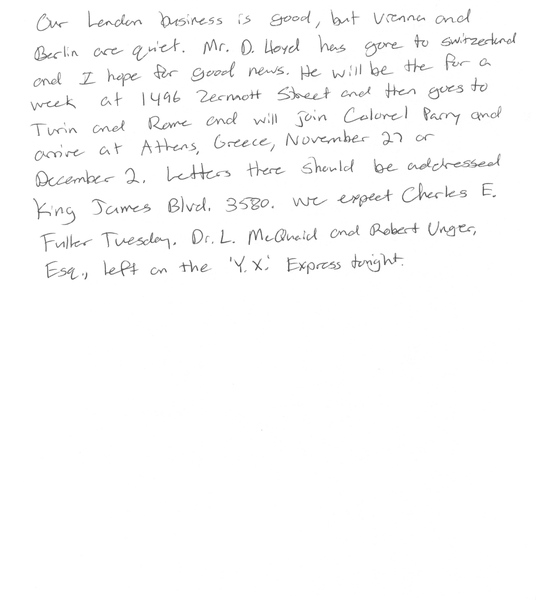 Our London business is good, but Vienna and
Berlin are quiet. Mr. D. Lloyd has gone to Switzerland
and I hope for good news. He will be the for a
week at 1496 Zermott Street and then goes to
Turin and Rome and will join Colonel Parry and
arrive at Athens, Greece, November 27 or
December 2. Letters there should be addressed
King James Blvd. 3580. We expect Charles E.
Fuller Tuesday. Dr. L. McQuaid and Robert Unger,
Esq., left on the 'Y.X.' Express tonight.